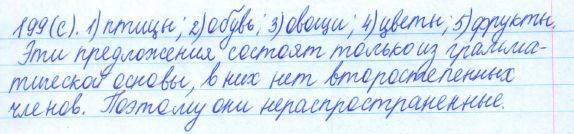 199(с). 1) птицы; 2) обувь; 3) овощи; 4) цветы; 5) фрукты.
Эти предложения состоят только из грамма-
тической основы, в них нет второстепенных
членов. Поэтому они нераспространенные.